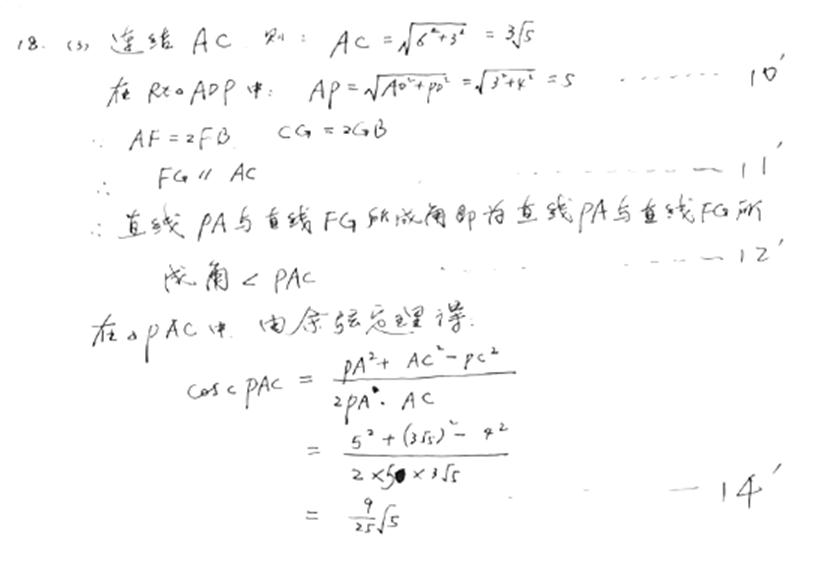 18. (3) 连结 AC 则: AC = √(6²+3²) = 3√5
在 Rt△ADP 中: AP = √(AD²+PD²) = √(3²+4²) = 5 ······ 10′
∵ AF = 2FB CG = 2GB
∴ FG // AC ······ 11′
∴ 直线 PA 与直线 FG 所成角即为直线 PA 与直线 FG 所
成角 ∠PAC ······ 12′
在△PAC 中 由余弦定理得:
cos∠PAC = (PA² + AC² − PC²) / (2PA · AC)
= (5² + (3√5)² − 4²) / (2×5×3√5)
= 9/25 √5 ······ 14′